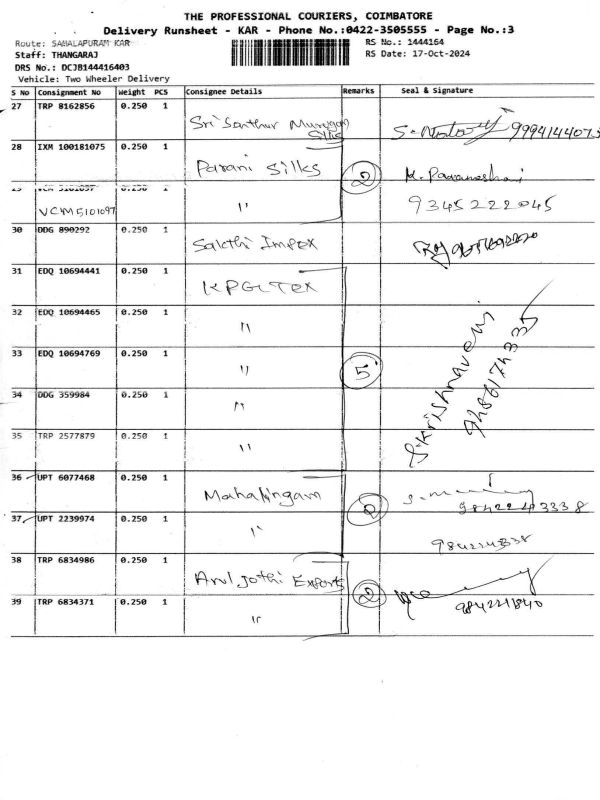 THE PROFESSIONAL COURIERS, COIMBATORE
Delivery Runsheet - KAR - Phone No.:0422-3505555 - Page No.:3
Route: SAHALAPURAM KAR RS No.: 1444164
Staff: THANGARAJ RS Date: 17-Oct-2024
DRS No.: DCJB144416403
Vehicle: Two Wheeler Delivery
S No Consignment No Weight PCS Consignee Details Remarks Seal & Signature
27 TRP 8162856 0.250 1 Sri Senthur Murugan Silks 9994144073
28 IXM 100181075 0.250 1 Parani Silks 2 K. Parameshwari
29 VCM 5101097 0.250 1 " 9345222045
VCM5101097
30 DDG 890292 0.250 1 Sakthi Impex
31 EDQ 10694441 0.250 1 KPG Tex
32 EDQ 10694465 0.250 1 "
33 EDQ 10694769 0.250 1 " 5 S. Krishnaveni
34 DDG 359984 0.250 1 "
35 TRP 2577879 0.250 1 "
36 UPT 6077468 0.250 1 Mahalingam 2 9842243338
37 UPT 2239974 0.250 1 " 9842243338
38 TRP 6834986 0.250 1 Arul Jothi Exports 2 9842221840
39 TRP 6834371 0.250 1 "